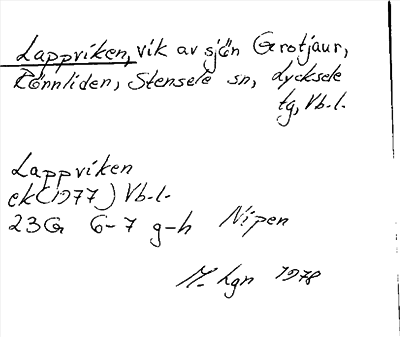 Lappviken, vik av sjön Grotjaur,
Rönnliden, Stensele sn, Lycksele
tg, Vb.l.
Lappviken
ek(1977) Vb.l.
23G 6-7 g-h Nipen
M. Lgn 1978